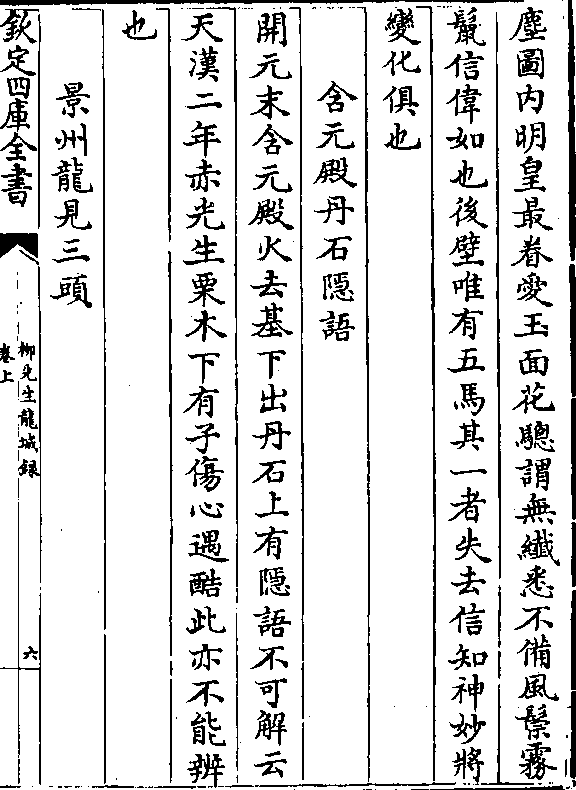 塵圖内明皇最眷愛玉面花驄謂無纖悉不備風鬃霧
鬛信偉如也後壁唯有五馬其一者失去信知神妙將
變化俱也
含元殿丹石隠語
開元末含元殿火去基下出丹石上有隠語不可解云
天漢二年赤光生栗木下有子傷心遇酷此亦不能辨
也
景州龍見三頭
欽定四庫全書
柳先生龍城録
卷上
六